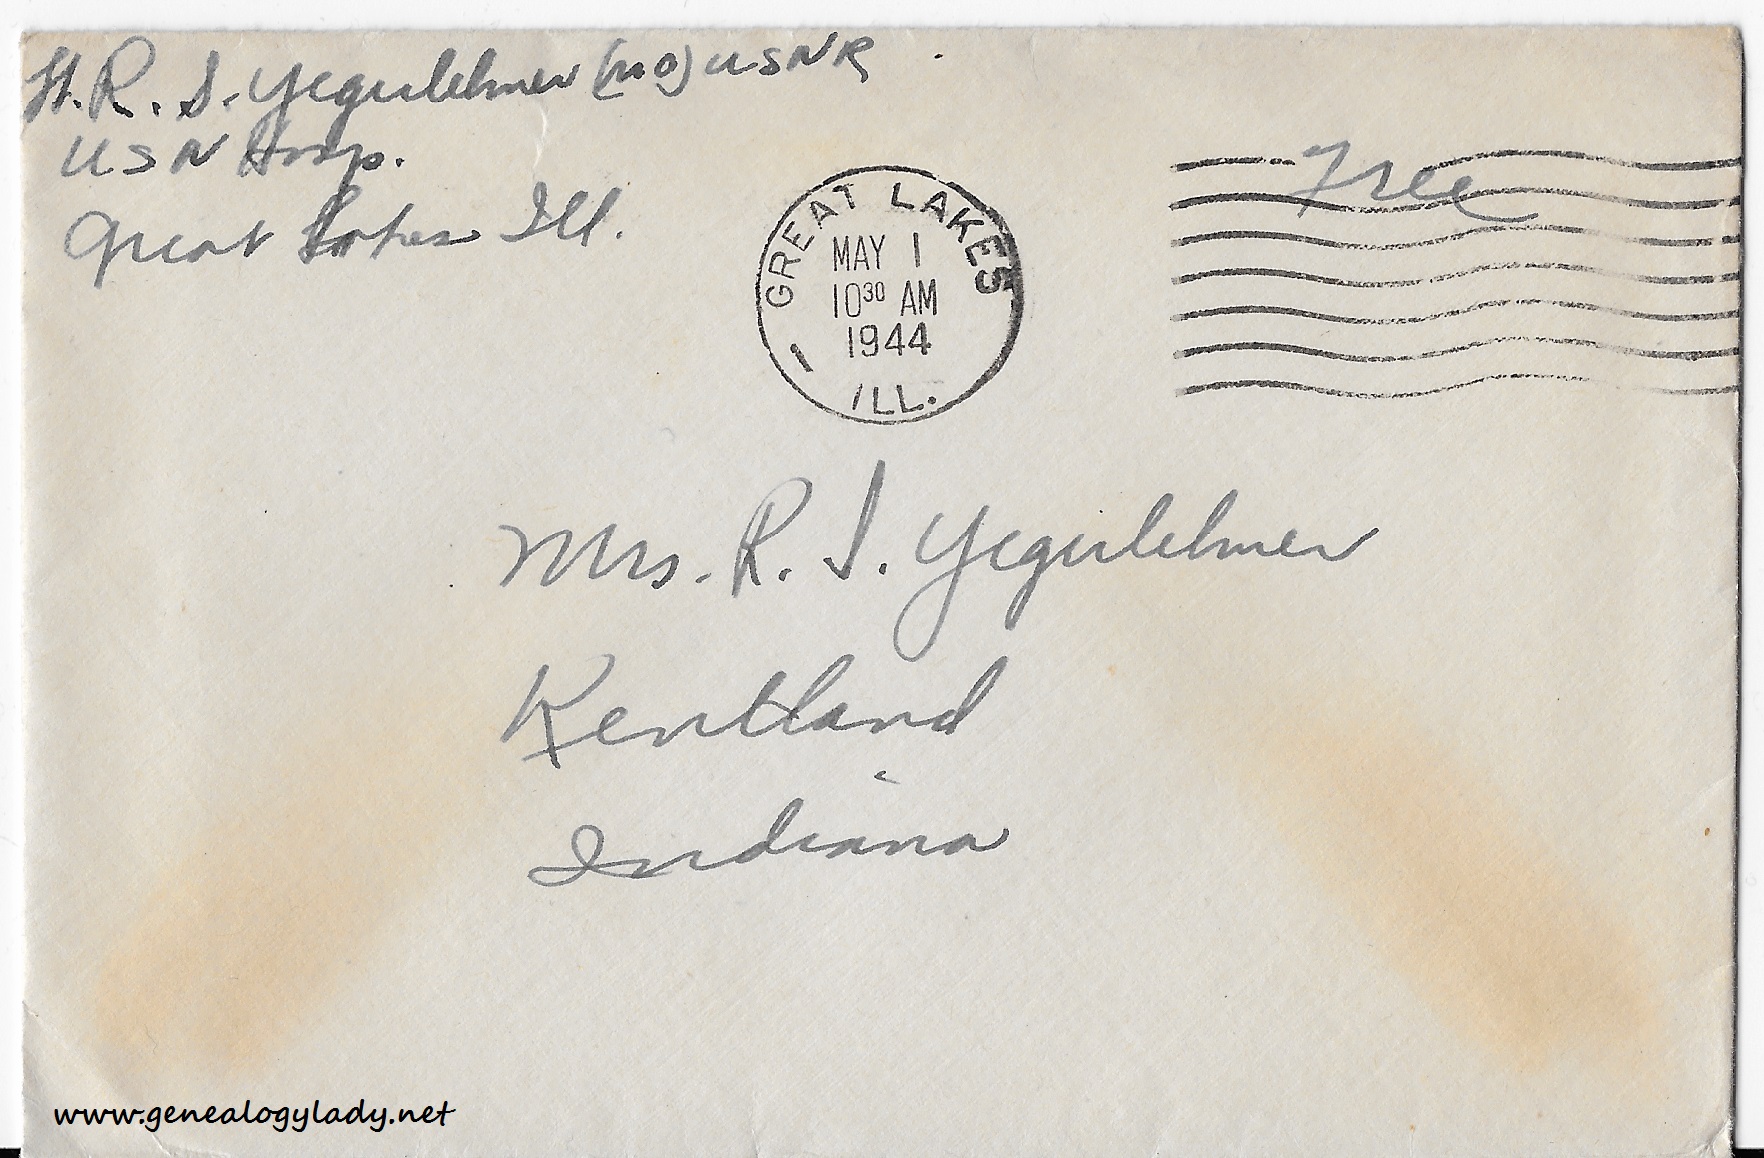 Lt. R. S. Yegerlehner (MC) USNR
USN Hosp.
Great Lakes Ill.
Free
GREAT LAKES
MAY 1
10 30 AM
1944
1
ILL.
Mrs. R. S. Yegerlehner
Kentland
Indiana
www.genealogylady.net